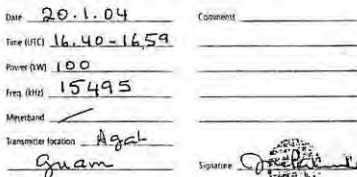 Date 20.1.04
Comments
Time (UTC) 16.40-16,59
Power (kW) 100
Freq. (kHz) 15495
Meterband /
Transmitter location Agat
Guam
Signature